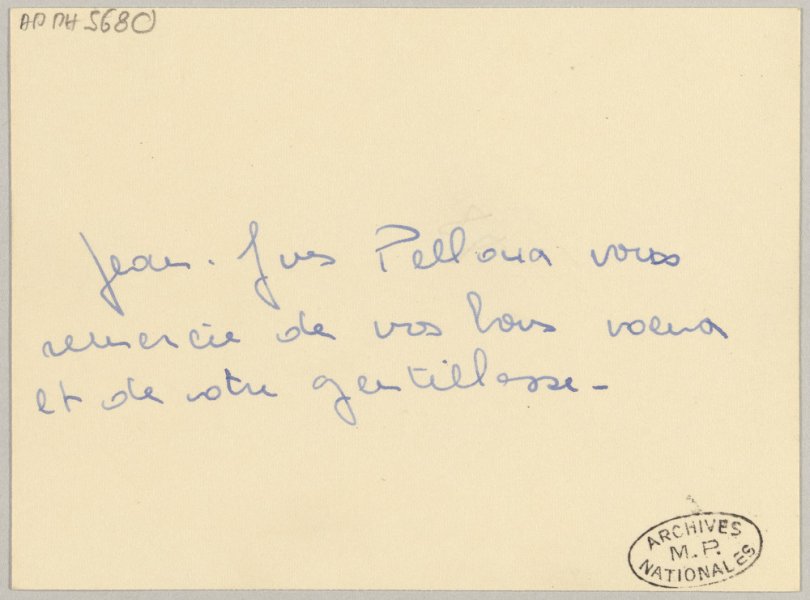 AP PH 5680
Jean-Yves Pelloux vous
remercie de vos bons voeux
et de votre gentillesse-
ARCHIVES
M. P.
NATIONALES